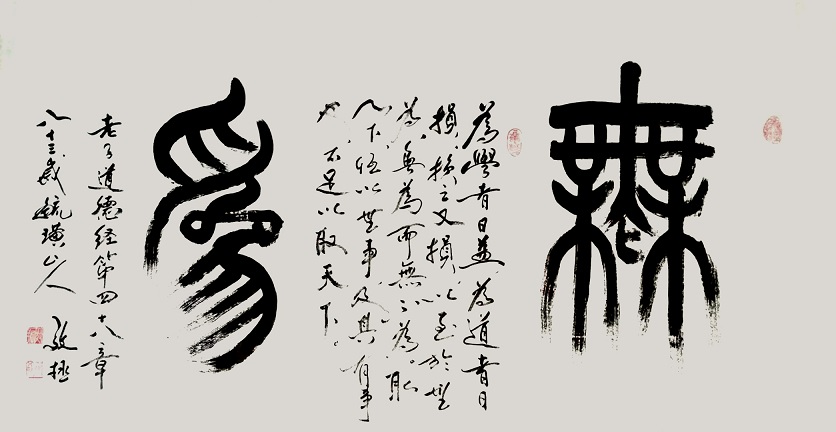 無
為學者日益為道者日
損損之又損以至於無
為無為而無不為取
天下恆以無事及其有事
不足以取天下
為
老子道德经第四十八章
八十三歲毓璜山人